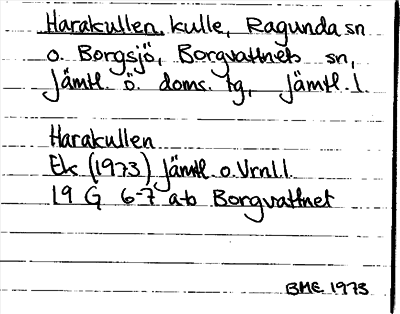 Harakullen, kulle, Ragunda sn
o. Borgsjö, Borgvattnets sn,
Jämtl. ö. doms. tg, Jämtl. l.
Harakullen
Ek (1973) Jämtl. o. Vrnl. l.
19 G 6-7 a-b Borgvattnet
BME 1973